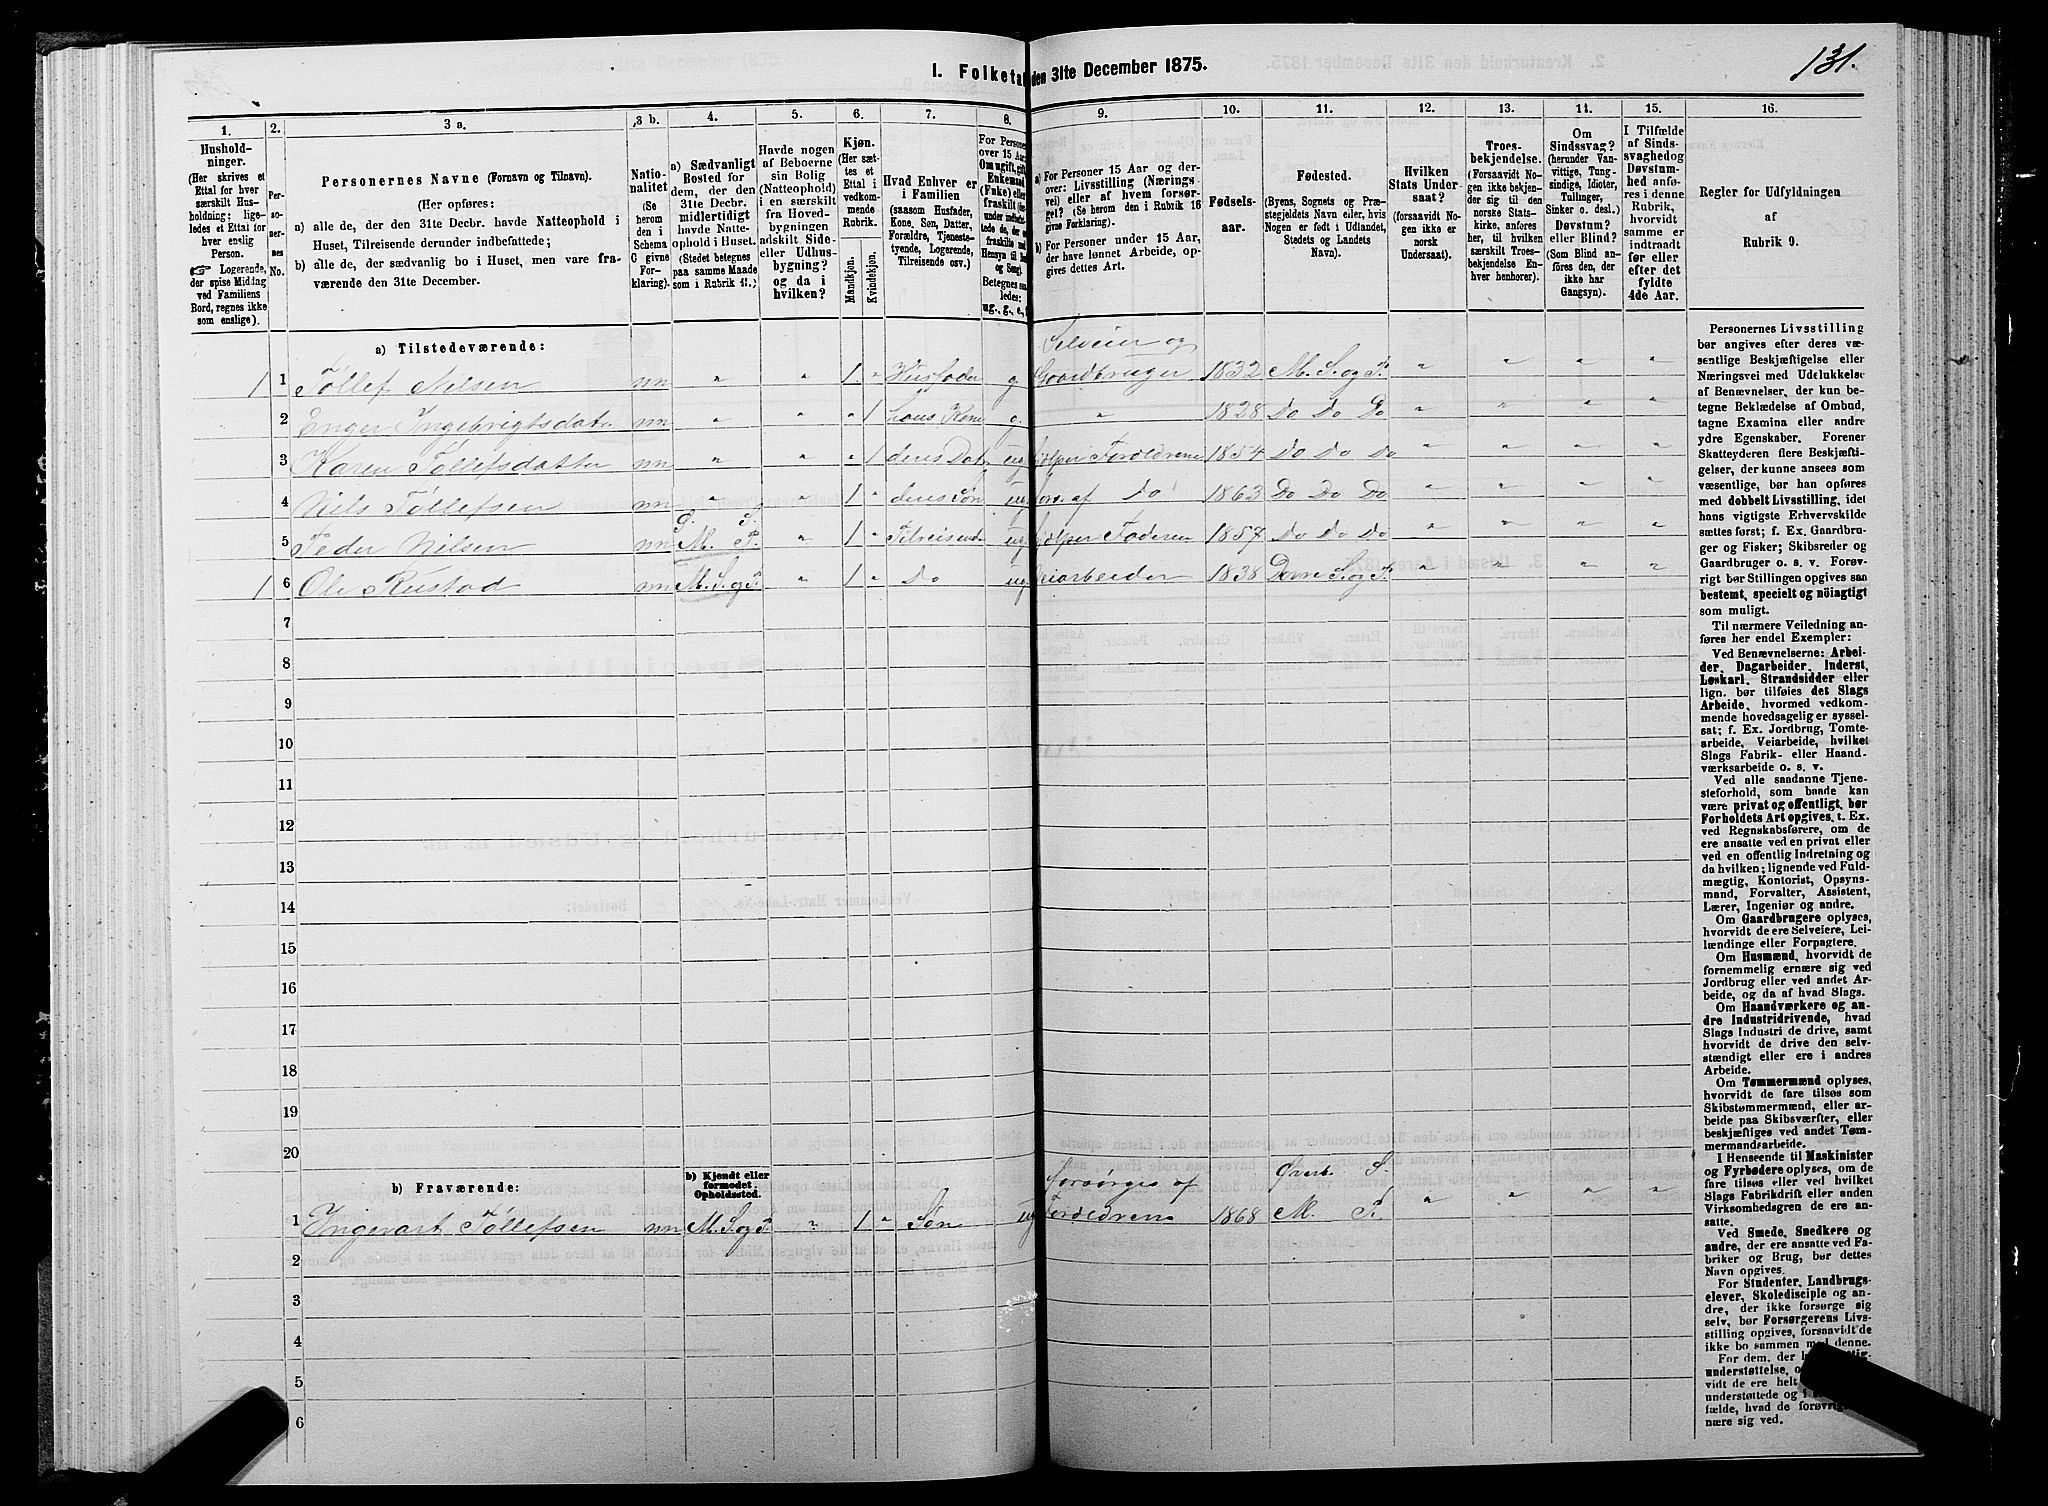 131.
I. Folketal den 31te December 1875.
1. 2. 3 a. 3 b. 4. 5. 6. 7. 8. 9. 10. 11. 12. 13. 14. 15. 16.
Hushold-
ninger.
(Her skrives et
Ettal for hver
særskilt Hus-
holdning; lige-
ledes et Ettal for
hver enslig
Person.
☞ Logerende,
der spise Middag
ved Familiens
Bord, regnes ikke
som enslige).
Per-
so-
ner-
nes
No.
Personernes Navne (Fornavn og Tilnavn).
(Her opføres:
a) alle de, der den 31te Decbr. havde Natteophold i
Huset, Tilreisende derunder indbefattede;
b) alle de, der sædvanlig bo i Huset, men vare fra-
værende den 31te December.
Natio-
nalitet
(Se
herom
den i
Schema
C givne
For-
klaring).
a) Sædvanligt
Bosted for
dem, der den
31te Decbr.
midlertidigt
havde Natte-
ophold i Huset.
(Stedet betegnes
paa samme Maade
som i Rubrik 11.)
Havde nogen
af Beboerne
sin Bolig
(Natteophold)
i en særskilt
fra Hoved-
bygningen
adskilt Side-
eller Udhus-
bygning?
og da i
hvilken?
Kjøn.
(Her sæt-
tes et
Ettal i
vedkom-
mende
Rubrik.
Mandkjøn.
Kvindekjøn.
Hvad Enhver er
i Familien
(saasom Husfader,
Kone, Søn, Datter,
Forældre, Tjeneste-
tyende, Logerende,
Tilreisende osv.)
For Personer
over 15 Aar:
Om ugift, gift,
Enkemand
(Enke) eller
fraskilt
Betegnes saa-
ledes:
ug., g., e., f.
a) For Personer 15 Aar og der-
over: Livsstilling (Nærings-
vei) eller af hvem forsør-
get? (Se herom den i Rubrik 16
givne Forklaring).
b) For Personer under 15 Aar,
der have lønnet Arbeide, op-
gives dettes Art.
Fødsels-
aar.
Fødested.
(Byens, Sognets og Præ-
stegjeldets Navn eller, hvis
Nogen er født i Udlandet,
Stedets og Landets
Navn).
Hvilken
Stats Under-
saat?
(forsaavidt No-
gen ikke er
norsk
Undersaat).
Troes-
bekjendelse.
(Forsaavidt No-
gen ikke bekjen-
der sig til den
norske Stats-
kirke, anføres
her, til hvilken
særskilt Troes-
bekjendelse En-
hver henhører).
Om
Sindssvag?
(herunder Van-
vittige, Tung-
sindige, Idioter,
Tullinger,
Sinker o. desl.)
Døvstum?
eller Blind?
(Som Blind an-
føres den, der
ikke har
Gangsyn).
I Tilfælde
af Sinds-
svaghed og
Døvstum-
hed anfø-
res i denne
Rubrik,
hvorvidt
samme er
indtraadt
før eller
efter det
fyldte
4de Aar.
Regler for Udfyldningen
af
Rubrik 9.
a) Tilstedeværende:
Selveier og
1 1 Tollef Nilsen nn " " 1 " Husfader g. Gaardbruger 1832 M. S. og P. " " " "
2 Enger Ingebrigtsdat. nn " " " 1 hans Kone g. " 1828 Do Do Do " " " "
3 Karen Tollefsdatter nn " " " 1 deres Dat. ug. hjælper Forældrene 1854 Do Do Do " " " "
4 Nils Tollefsen nn " " 1 " deres søn ug. fors. af Do 1863 Do Do Do " " " "
5 Peder Nilsen nn M. P. " 1 " Tilreisende ug. hjælper Faderen 1857 Do Do Do " " " "
1 6 Ole Rustad nn M. S. og P. " 1 " Do ug. Veiarbeider 1838 Dovre S. og P. " " " "
7
8
9
10
11
12
13
14
15
16
17
18
19
20
b) Fraværende:
b) Kjendt eller
formodet
Opholdssted.
Forsørges af
Øverb. S.
1 Ingevart Tollefsen nn M. S. og P. " 1 " Søn ug. Forældrene 1868 M. P. " " " "
2
3
4
5
6
Personernes Livsstilling
bør angives efter deres væ-
sentlige Beskjæftigelse eller
Næringsvei med Udelukkelse
af Benævnelser, der kun be-
tegne Beklædelse af Ombud,
tagne Examina eller andre
ydre Egenskaber. Forener
Skatteyderen flere Beskjæfti-
gelser, der kunne ansees som
væsentlige, bør han opføres
med dobbelt Livsstilling, idet
hans vigtigste Erhvervskilde
sættes først; f. Ex. Gaardbru-
ger og Fisker; Skibsreder og
Gaardbruger o. s. v. Forøv-
rigt bør Stillingen opgives saa
bestemt, specielt og nöiagtigt
som muligt.
Til nærmere Veiledning an-
føres her endel Exempler:
Ved Benævnelserne: Arbei-
der, Dagarbeider, Inderst,
Løskarl, Strandsidder eller
lign. bør tilføies det Slags
Arbeide, hvormed vedkom-
mende hovedsagelig er syssel-
sat; f. Ex. Jordbrug, Tomte-
arbeide, Veiarbeide, hvilket
Slags Fabrik- eller Haand-
værksarbeide o. s. v.
Ved alle saadanne Tjene-
steforhold, som baade kan
være privat og offentligt, bør
Forholdets Art opgives, t. Ex.
ved Regnskabsførere, om de
ere ansatte ved en privat eller
ved en offentlig Indretning og
da hvilken; lignende ved Fuld-
mægtig, Kontorist, Opsyns-
mand, Forvalter, Assistent,
Lærer, Ingeniør og andre.
Om Gaardbrugere oplyses,
hvorvidt de ere Selveiere, Lei-
lændinge eller Forpagtere.
Om Husmænd, hvorvidt de
fornemmelig ernære sig ved
Jordbrug eller ved andet Ar-
beide, og da af hvad Slags.
Om Haandværkere og an-
dre Industridrivende, hvad
Slags Industri de drive, samt
hvorvidt de drive den selv-
stændigt eller ere i andres
Arbeide.
Om Tømmermænd oplyses,
hvorvidt de fare tilsøs som
Skibstømmermænd, eller ar-
beide paa Skibsværfter, eller
beskjæftiges ved andet Tøm-
mermandsarbeide.
I Henseende til Maskinister
og Fyrbødere oplyses, om de
fare tilsøs eller ved hvilket
Slags Fabrikdrift eller anden
Virksomhedsgren de ere an-
satte.
Ved Smede, Snedkere og
andre, der ere ansatte ved Fa-
briker og Brug, bør dettes
Navn opgives.
For Studenter, Landbrugs-
elever, Skoledisciple og an-
dre, der ikke forsørge sig
selv, bør Forsørgerens Livs-
stilling opgives, forsaavidt de
ikke bo sammen med denne.
For dem, der
understøttelse,
vidt de ere helt
understøttede og i
fælde, hvad de forøvrigt
nære sig ved.